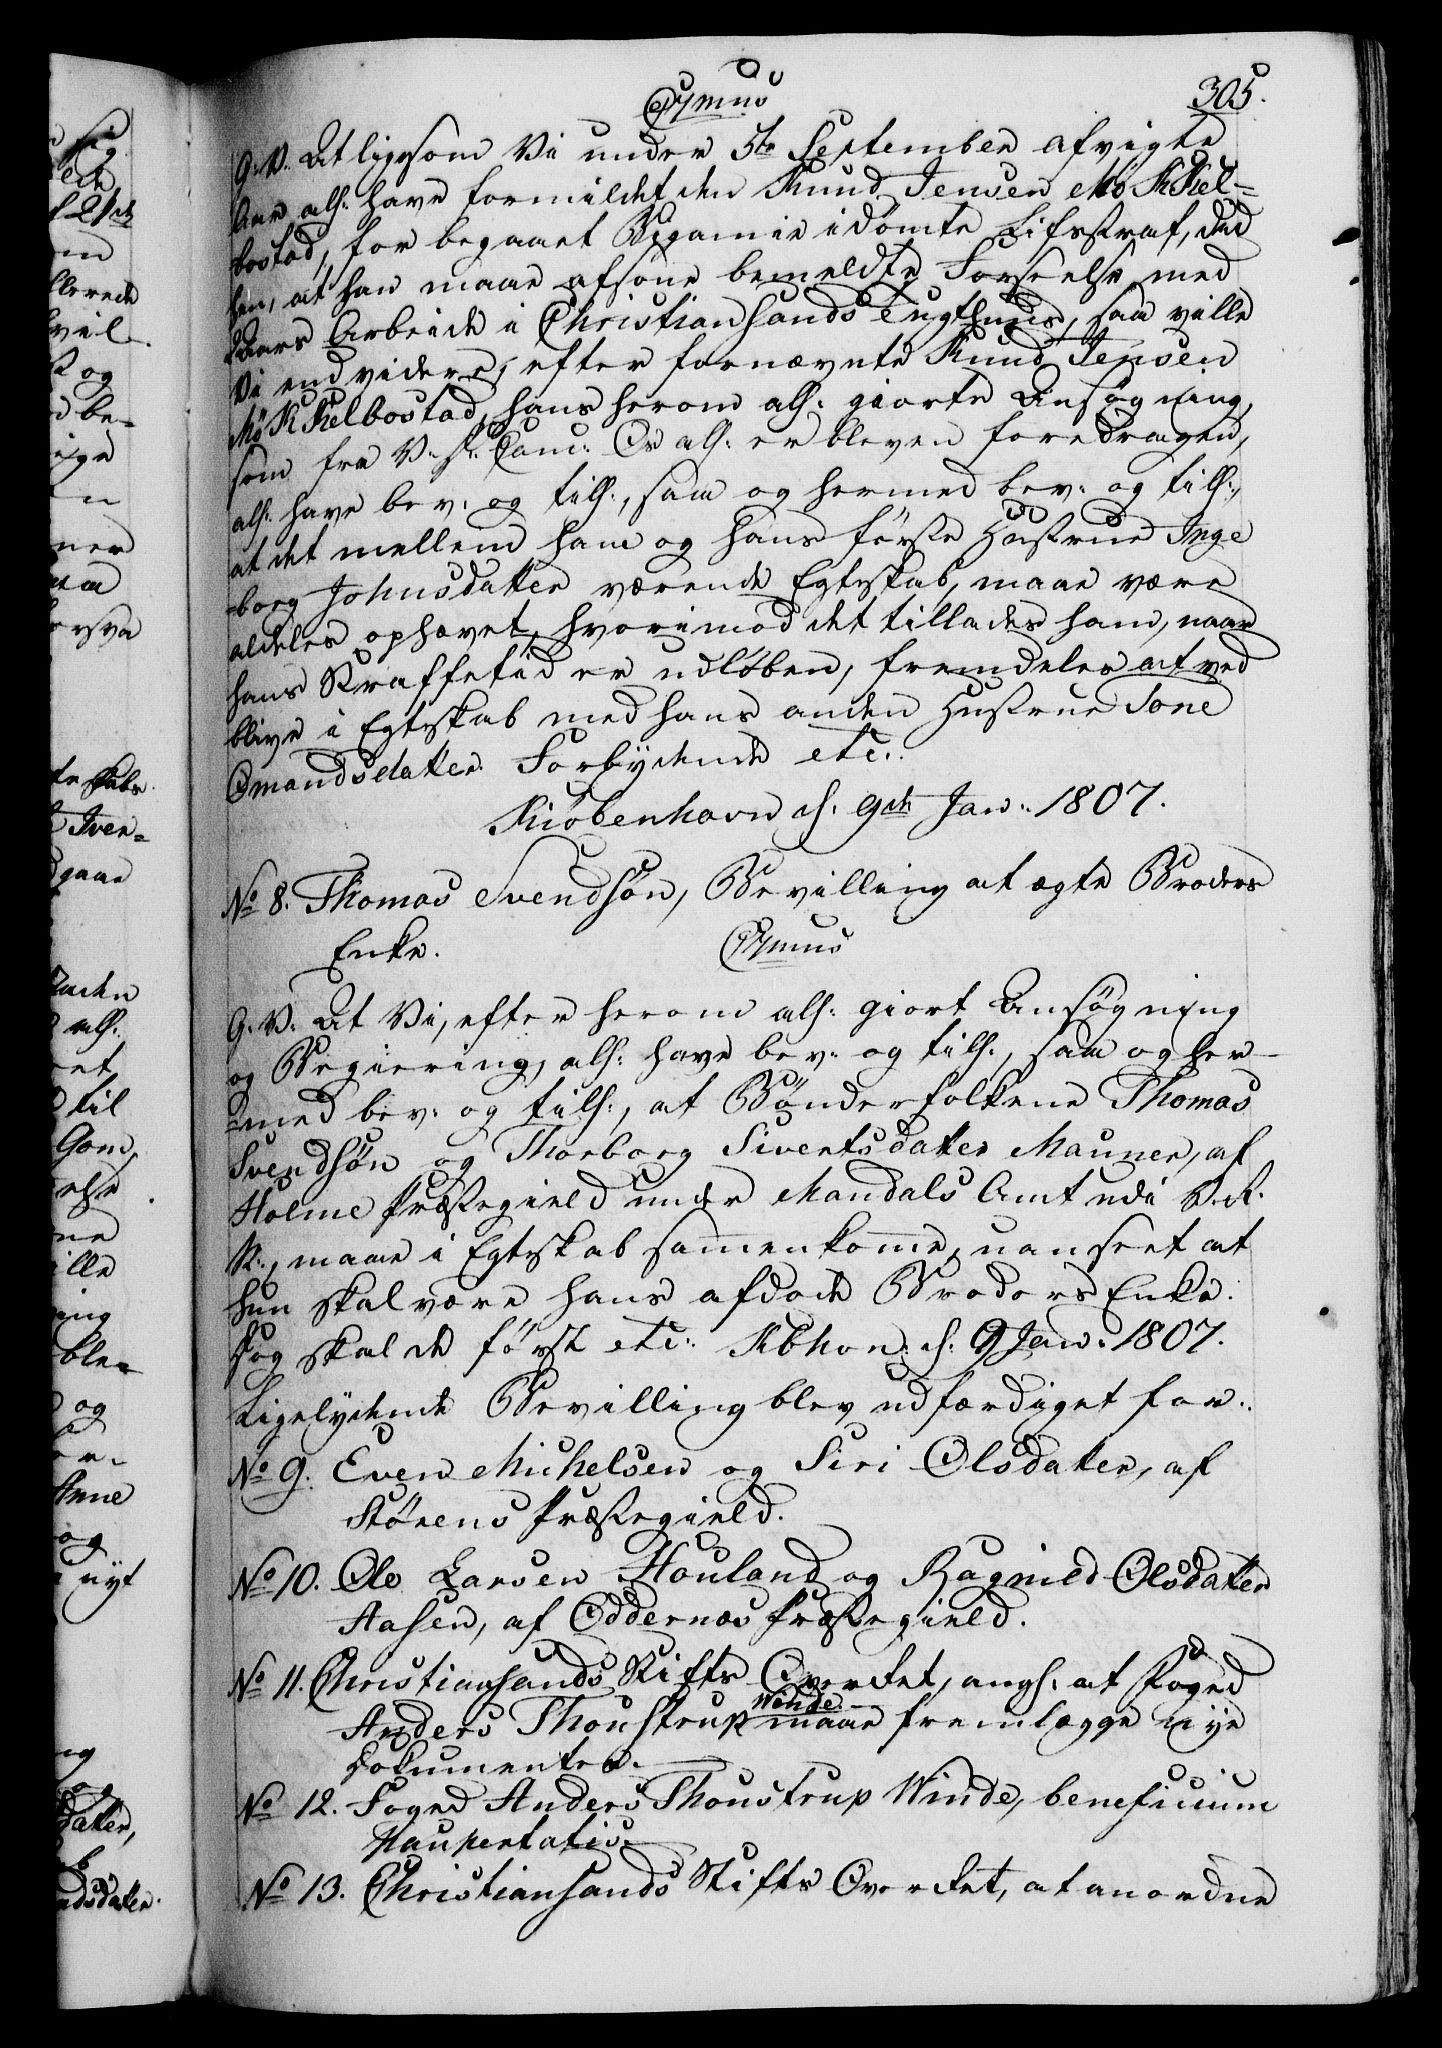 C7mus
305.
G: V: At ligesom Vi under 5te September afvigte
Aar alh: have formildet den Knud Jensen Møkkel-
bostad, for begaaet Bigamie idømte Lifsstraf, der
hen, at han maae afsone bemeldte Forseelse med
Aars Arbeide i Christiansands Tugthuus, saa ville
Vi endvidere, efter fornævnte Knud Jensen
Møkkelbostad, hans herom alh: giorte Ansøgning,
som fra V: D: Canc: Os alh: er bleven foredragen,
alh: have bev: og tilh:, saa og hermed bev: og tilh:,
at det mellem ham og hans første Hustrue Inge
-borg Johnsdatter værende Egteskab, maae være
aldeles ophævet, hvorimod det tillades ham, naar
hans Straffetid er udløben, fremdeles at ved
blive i Egteskab med hans anden Hustrue Tone
Omandsdatter. Forbydende etc:.
Kiøbenhavn d: 9de Jan: 1807.
No 8. Thomas Svendsøn, Bevilling at ægte Broders
Enke.
C7mus
G: V: At Vi, efter herom alh: giort Ansøgning
og Begiering, alh: have bev: og tilh:, saa og her-
-med bev: og tilh:, at Bønderfolkene Thomas
Svendsøn og Thorborg Sivertsdatter Mauner, af
Holme Præstegield under Mandals Amt udi V: R:
N:, maae i Egteskab sammenkomme, uanseet at
hun skal være hans afdøde Broders Enke.
Dog skal de først etc: Kbhvn: d: 9 Jan: 1807.
Ligelydende Bevilling blev udfærdiget for:
No 9. Even Michelsen og Siri Olsdatter, af
Störens Præstegield.
No 10. Ole Larsen Houland og Ragnild Olsdatter
Aasen, af Oddernæs Præstegield.
No 11. Christiansands Stifts Overret, angh: at Foged
Anders Thoustrup Winde maae fremlægge nye
Dokumenter.
No 12. Foged Anders Thoustrup Winde, beneficium
paupertatis.
No 13. Christiansands Stifts Overret, at anordne